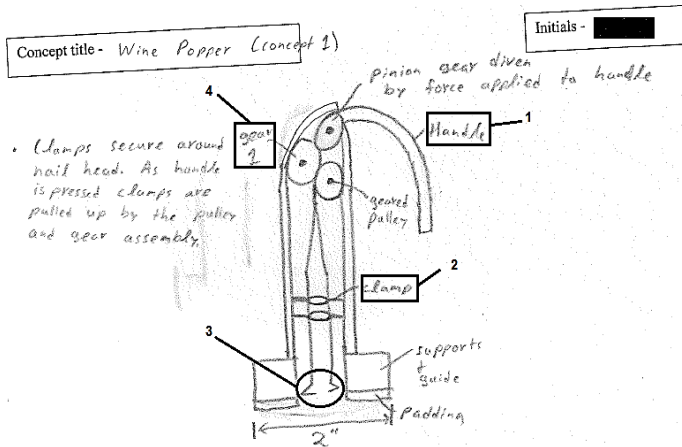 Concept title - Wine Popper (concept 1)
Initials -
pinion gear driven
by force applied to handle
4
1
gear
1
Handle
• Clamps secure around
nail head. As handle
is pressed clamps are
pulled up by the pulley
and gear assembly.
geared
pulley
2
clamp
3
supports
+
guide
padding
2"